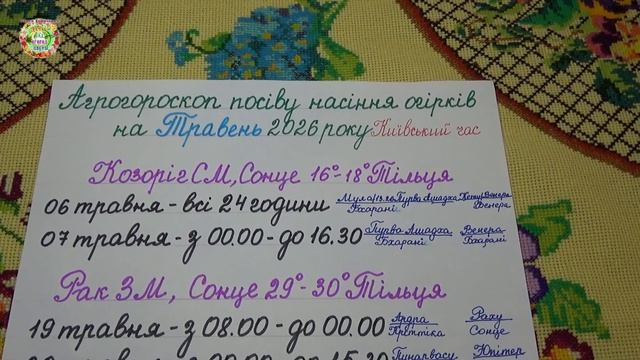 Агрогороскоп посіву насіння огірків
на Травень 2026 року Київський час
Козоріг СМ, Сонце 16°-18° Тільця
06 травня - всі 24 години Мула/13.26 Пурва Ашадха Кету/Венера
Бхарані Венера
07 травня - з 00.00 - до 16.30 Пурва Ашадха Венера
Бхарані Венера
Рак ЗМ, Сонце 29°-30° Тільця
19 травня - з 08.00 - до 00.00 Ардра Раху
Кріттіка Сонце
до 15.30 Пунарвасу Юпітер